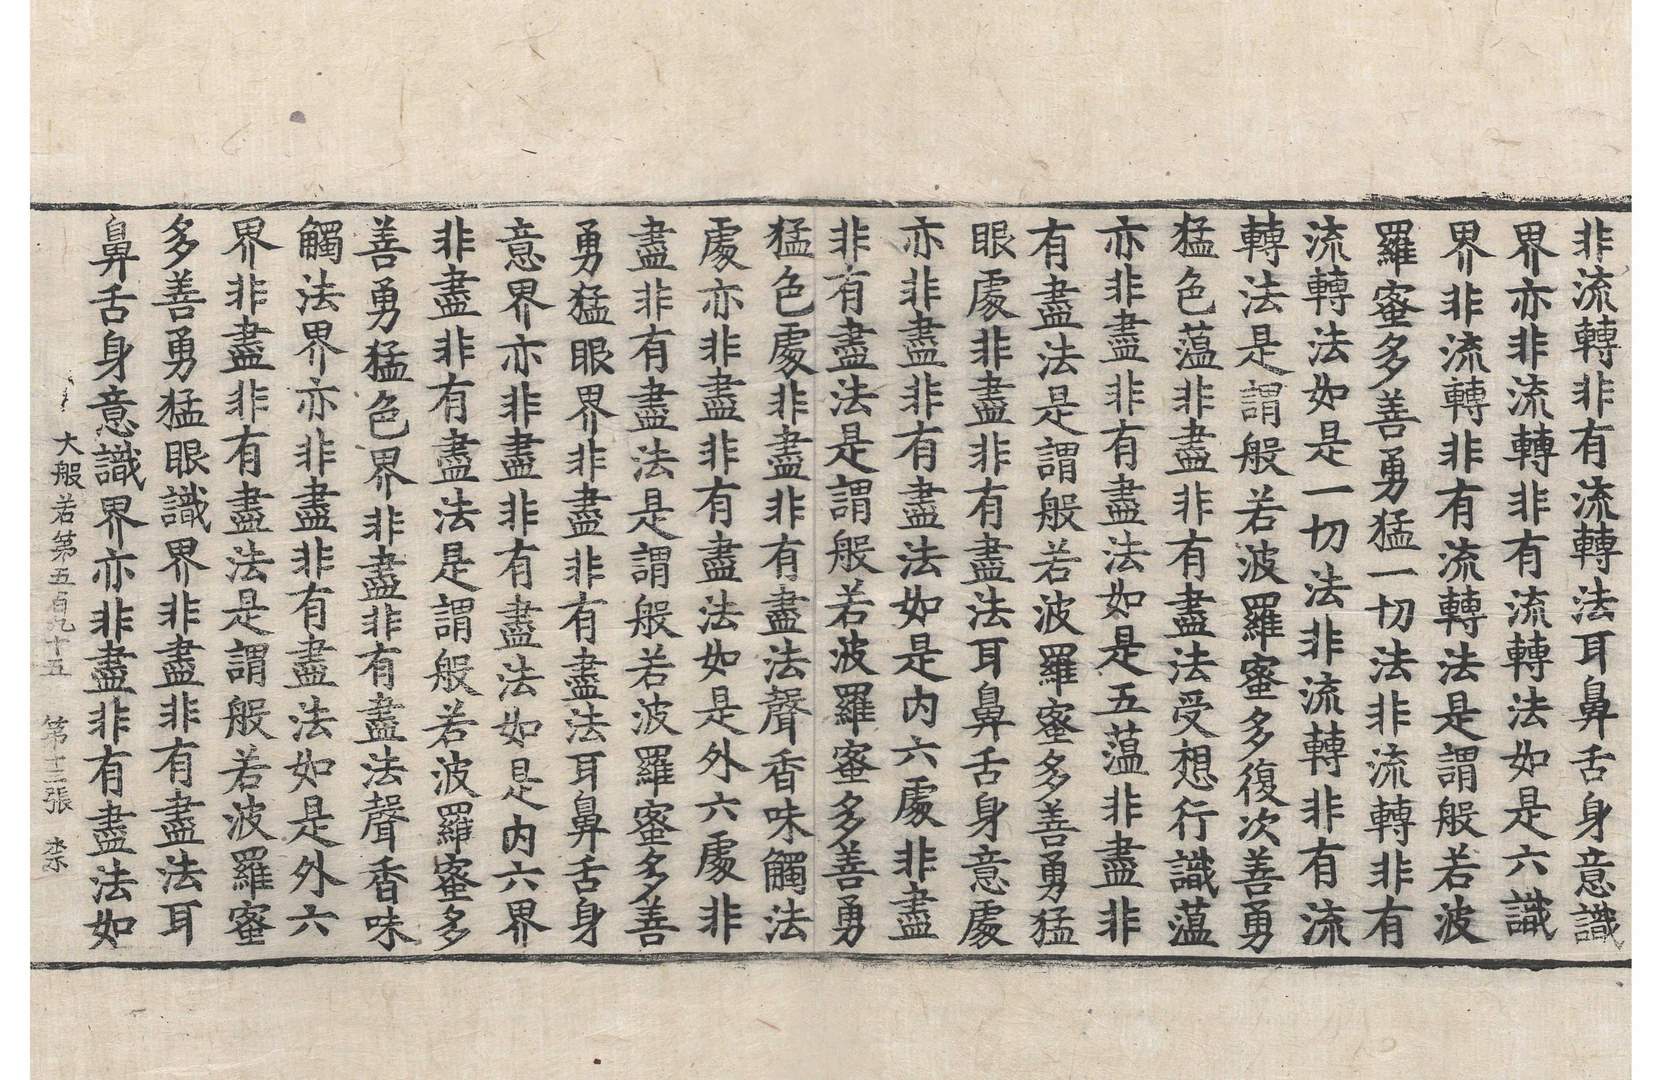 非流轉非有流轉法耳鼻舌身意識
界亦非流轉非有流轉法如是六識
界非流轉非有流轉法是謂般若波
羅蜜多善勇猛一切法非流轉非有
流轉法如是一切法非流轉非有流
轉法是謂般若波羅蜜多復次善勇
猛色薀非盡非有盡法受想行識薀
亦非盡非有盡法如是五薀非盡非
有盡法是謂般若波羅蜜多善勇猛
眼處非盡非有盡法耳鼻舌身意處
亦非盡非有盡法如是内六處非盡
非有盡法是謂般若波羅蜜多善勇
猛色處非盡非有盡法聲香味觸法
處亦非盡非有盡法如是外六處非
盡非有盡法是謂般若波羅蜜多善
勇猛眼界非盡非有盡法耳鼻舌身
意界亦非盡非有盡法如是内六界
非盡非有盡法是謂般若波羅蜜多
善勇猛色界非盡非有盡法聲香味
觸法界亦非盡非有盡法如是外六
界非盡非有盡法是謂般若波羅蜜
多善勇猛眼識界非盡非有盡法耳
鼻舌身意識界亦非盡非有盡法如
大般若第五百九十五 第十三張 柰